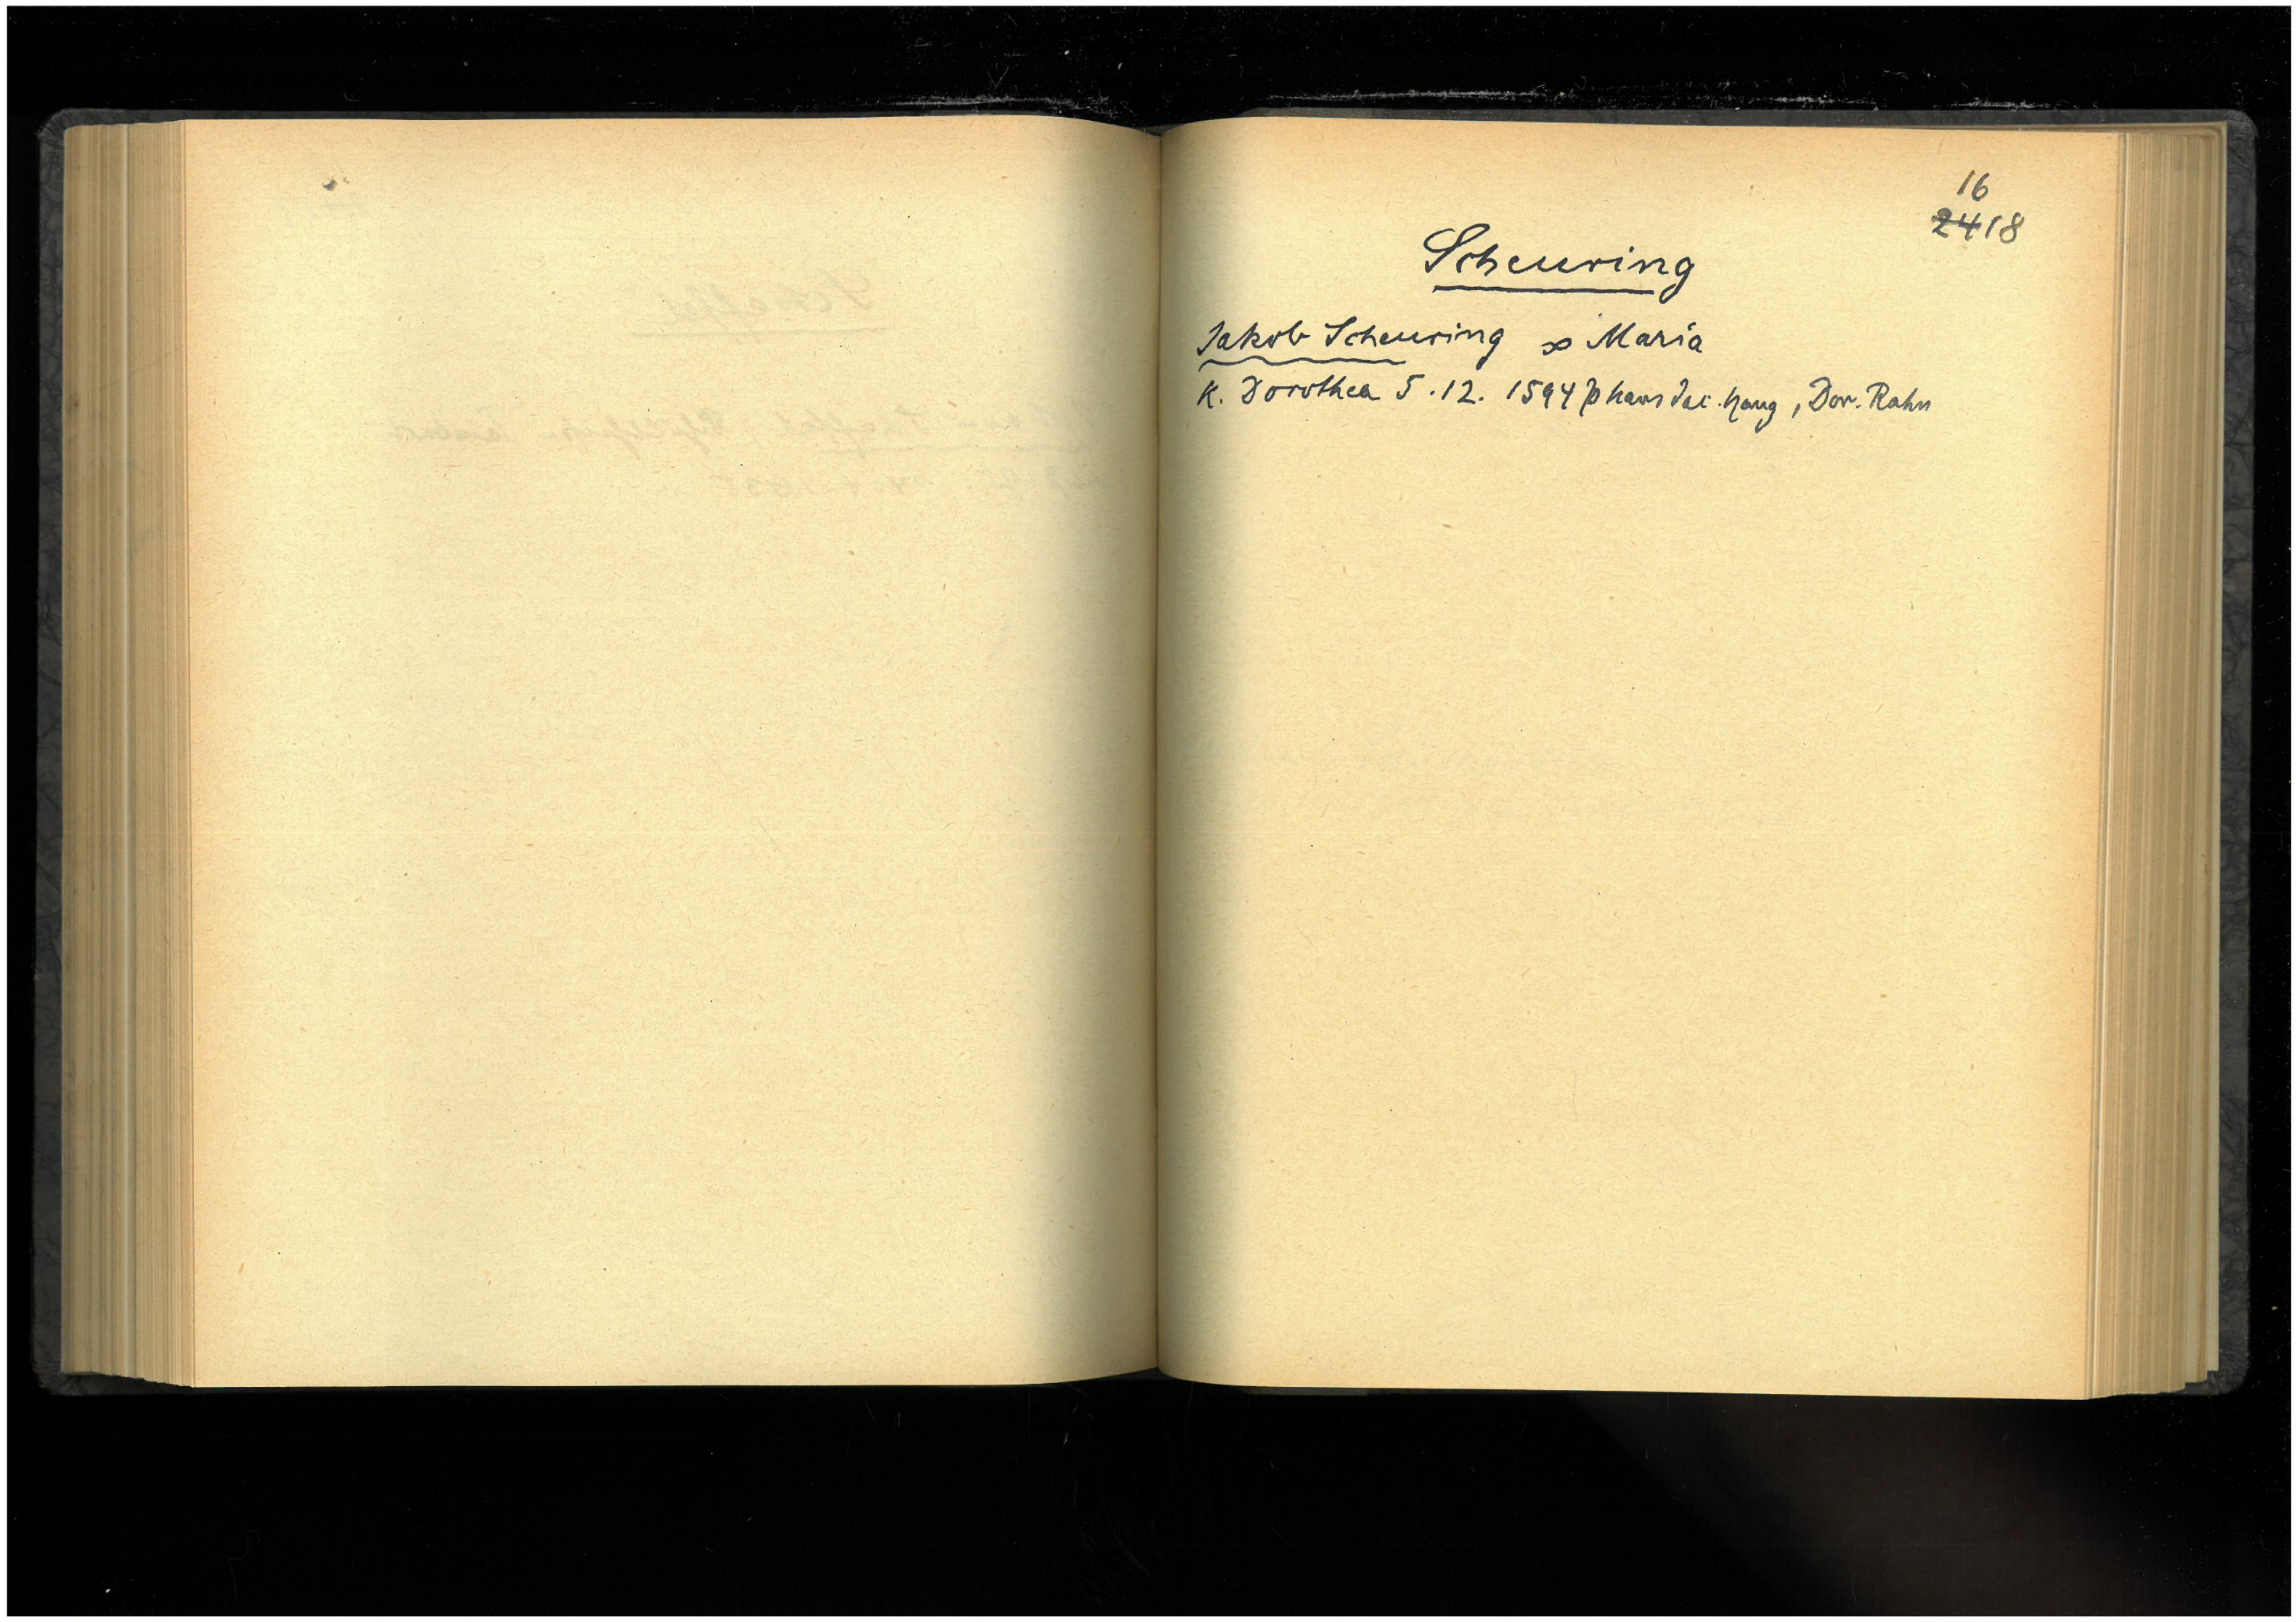 16
2418
Scheuring
Jakob Scheuring ∞ Maria
K. Dorothea 5.12. 1594 p Hans Jac. Haug, Dor. Rahn